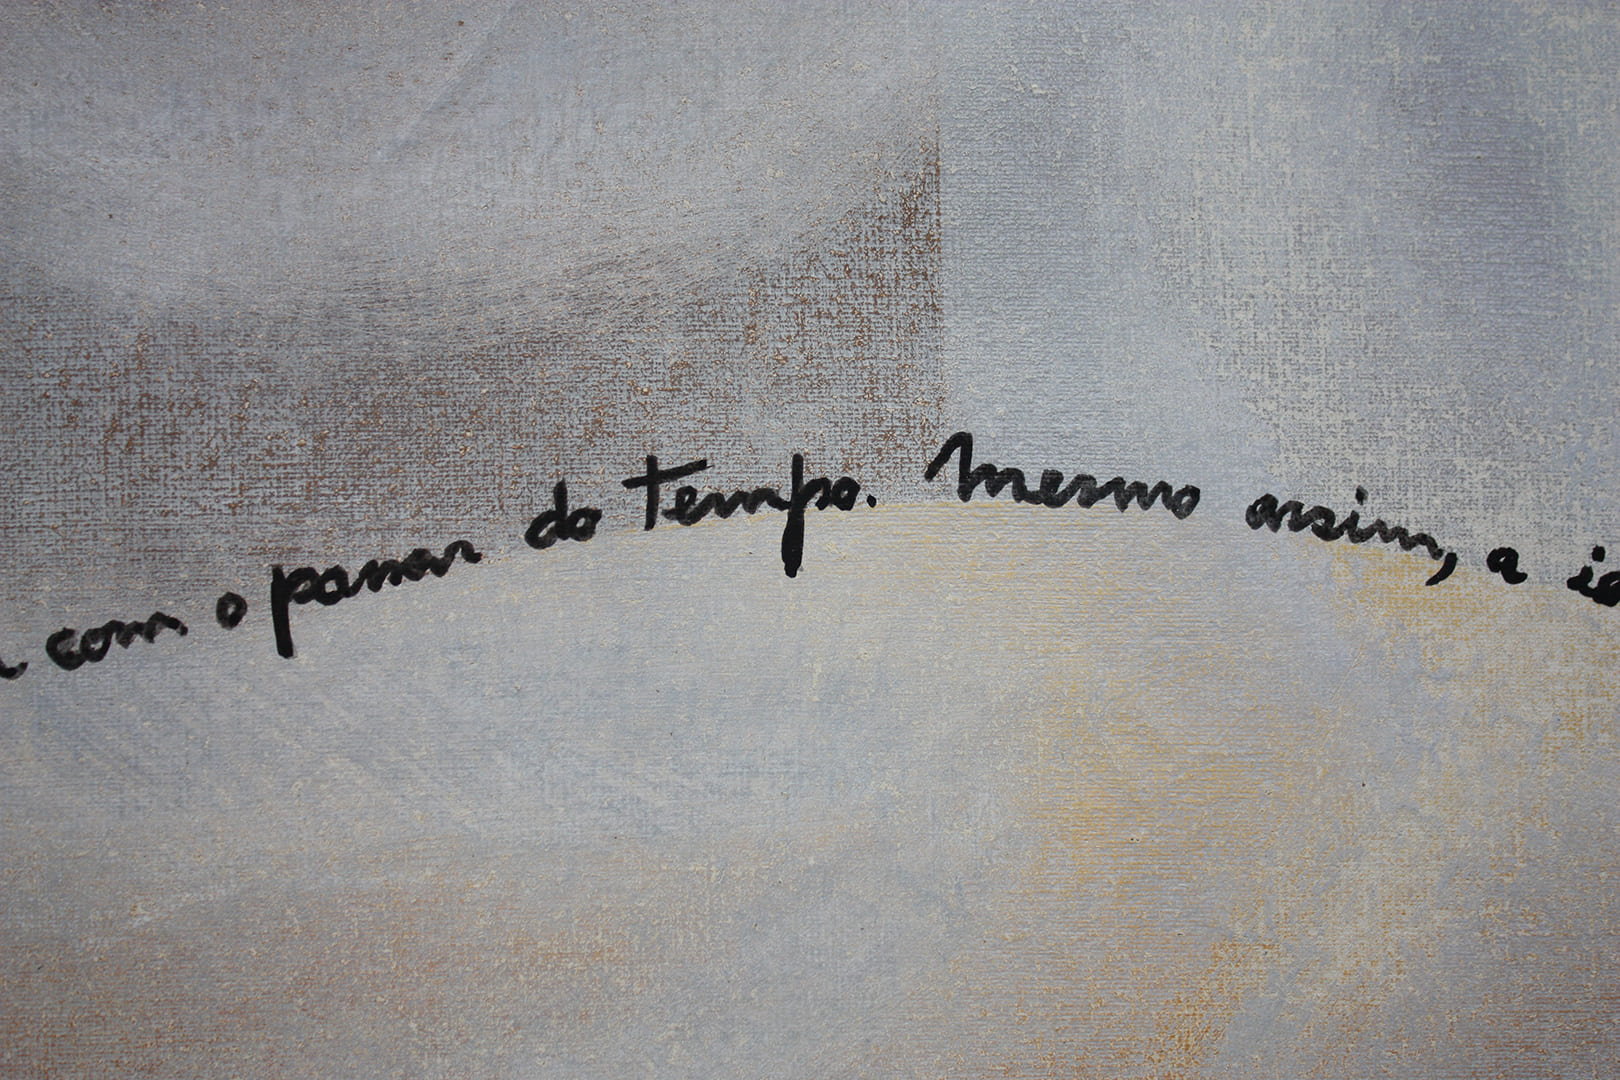 com o passar do tempo. Mesmo assim, a